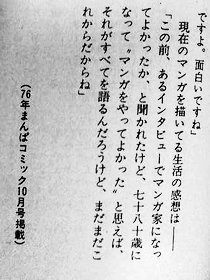 ですよ。面白いですね」
現在のマンガを描いてる生活の感想は――
「この前、あるインタビューでマンガ家になっ
てよかったか、と聞かれたけど、七十八十歳に
なって〝マンガをやってよかった〟と思えば、
それがすべてを語るんだろうけど、まだまだこ
れからだからね」
(76年まんぱコミック10月号掲載)